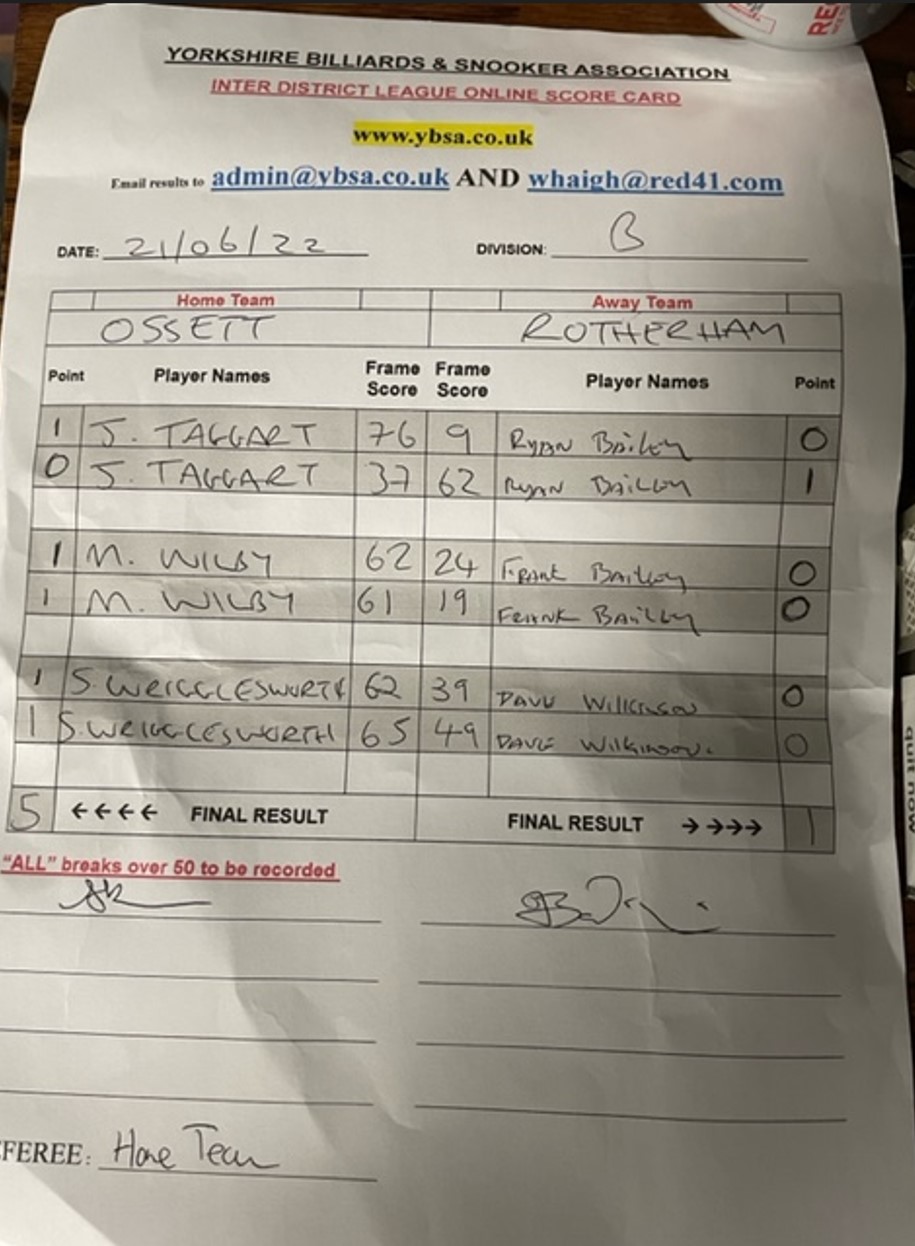 RE
YORKSHIRE BILLIARDS & SNOOKER ASSOCIATION
INTER DISTRICT LEAGUE ONLINE SCORE CARD
www.ybsa.co.uk
Email results to admin@ybsa.co.uk AND whaigh@red41.com
DATE: 21/06/22 DIVISION: B
Home Team Away Team
OSSETT ROTHERHAM
Point Player Names Frame Score Frame Score Player Names Point
1 J. TAGGART 76 9 RYAN BAiley 0
0 J. TAGGART 37 62 RYAN BAiLey 1
1 M. WILBY 62 24 FRANK BAiley 0
1 M. WILBY 61 19 FRANK BAiLey 0
1 S. WRIGGLESWORTH 62 39 DAVE WilKinson 0
1 S. WRIGGLESWORTH 65 49 DAVE WilKinson. 0
5 ←←←← FINAL RESULT FINAL RESULT →→→→ 1
"ALL" breaks over 50 to be recorded
FEREE: Home Team
quit now